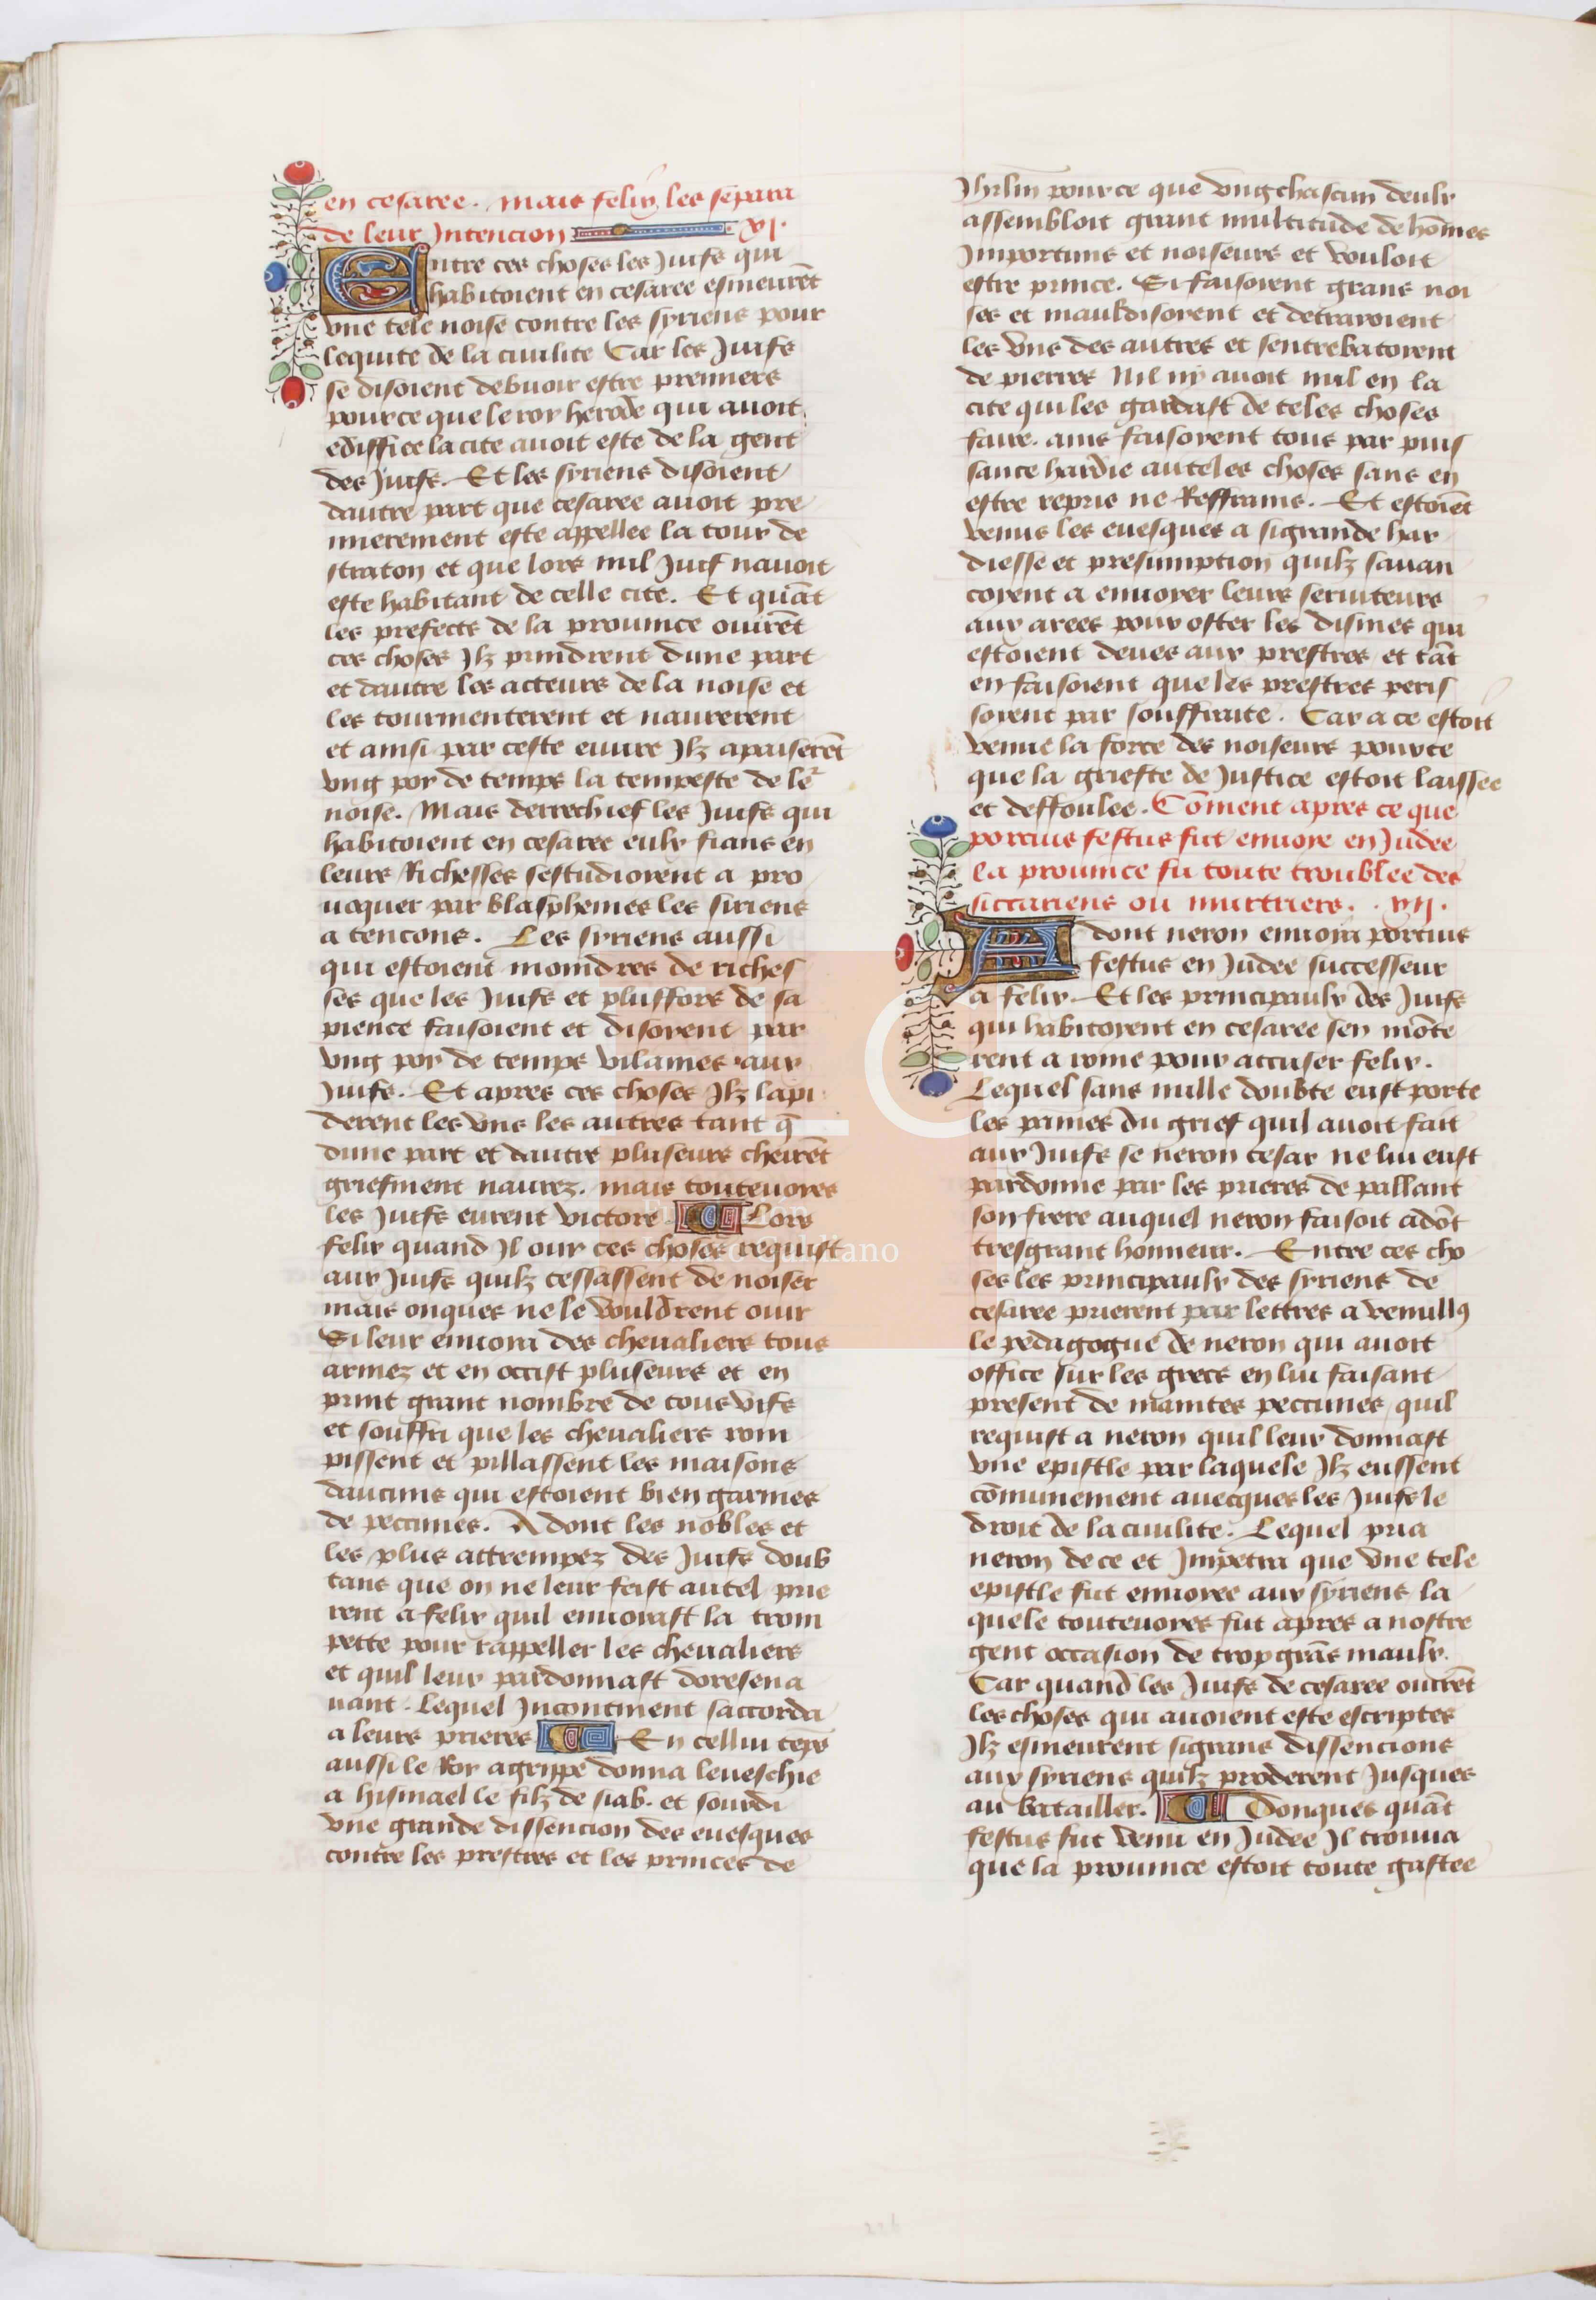 en cesaree. mais felix les separa
de leur Intencion .vi.
Entre ces choses les Juifs qui
habitoient en cesaree esmeurēt
vne tele noise contre les syriens pour
lequite de la ciuilite Car les Juifs
se disoient debuoir estre premiers
pource que le roy herode qui auoit
edifficé la cite auoit este de la gent
des Juifs. Et les syriens disoient
dautre part que cesaree auoit pre
mierement este appellee la tour de
straton et que lors nul Juif nauoit
este habitant de celle cite. Et quāt
les prefects de la prouince ouirēt
ces choses Ilz prindrent dune part
et dautre les acteurs de la noise et
les tourmenterent et naurerent
et ainsi par ceste euure Ilz apaiserēt
vng poy de temps la tempeste de leʳ
noise. Mais derrechief les Juifs qui
habitoient en cesaree eulx fians en
leurs Richesses sestudioient a pro
uoquer par blasphemes les siriens
a tencons. Les syriens aussi
qui estoient moindres de riches
ses que les Juifs et plusfors de sa
pience faisoient et disoient par
vng poy de temps vilanies aux
Juifs. Et apres ces choses Ilz lapi
derent les vns les autres tant q̄
dune part et dautre pluseurs cheirēt
griefment naurez. mais touteuoies
les Juifs eurent victore. Lors
felix quand Il ouy ces choses requist
aux Juifs quilz cessassent de noiser
mais onques ne le vouldrent ouir
Si leur enuoia des cheualiers tous
armez et en occist pluseurs et en
print grant nombre de tous vifs
et souffri que les cheualiers rom
pissent et pillassent les maisons
daucuns qui estoient bien garnies
de peccunes. Adont les nobles et
les plus attrempez des Juifs doub
tans que on ne leur feist autel prie
rent a felix quil enuoiast la trom
pette pour rappeller les cheualiers
et quil leur pardonnast doresena
uant. Lequel Incontinent saccorda
a leurs prieres En cellui tēps
aussi le Roy agrippe donna leueschie
a hismael le filz de siab. et sourdi
vne grande dissencion des euesques
contre les prestres et les princes de
Jhrlm pource que vng chascun deulx
assembloit grant multitude de hōmes
Importuns et noiseurs et vouloit
estre prince. Si faisoient grans noi
ses et mauldisoient et detraioient
les vns des autres et sentrebatoient
de pierres Nil ny auoit nul en la
cite qui les gardast de teles choses
faire. ains faisoient tous par puis
sance hardie auteles choses sans en
estre repris ne Reffrains. Et estoiēt
venus les euesques a si grande har
diesse et presumption quilz sauan
coient a enuoyer leurs seruiteurs
aux arees pour oster les dismes qui
estoient deues aux prestres et tāt
en faisoient que les prestres peris
soient par souffraite. Car a ce estoit
venue la force des noiseurs pource
que la griefte de Justice estoit laissee
et deffoulee. Cōment apres ce que
porcius festus fut enuoie en Judee
la prouince fu toute troublee des
siccariens ou murtriers. .vii.
Adont neron enuoia porcius
festus en Judee successeur
a felix. Et les principaulx des Juifs
qui habitoient en cesaree sen mōte
rent a rome pour accuser felix.
Lequel sans nulle doubte eust porte
les paines du grief quil auoit fait
aux Juifs se neron cesar ne lui eust
pardonne par les prieres de pallant
son frere auquel neron faisoit adōt
tresgrant honneur. Entre ces cho
ses les principaulx des syriens de
cesaree prierent par lettres a verullꝰ
le pedagogue de neron qui auoit
office sur les grecs en lui faisant
present de maintes peccunes quil
requist a neron quil leur donnast
vne epistle par laquele Ilz eussent
cōmunement auecques les Juifs le
droit de la ciuilite. Lequel pria
neron de ce et Impetra que vne tele
epistle fut enuoiee aux syriens la
quele touteuoies fut apres a nostre
gent occasion de trop grās maulx.
Car quand les Juifs de cesaree ouirēt
les choses qui auoient este escriptes
Ilz esmeurent si grans dissencions
aux syriens quilz proderent Jusques
au batailler. Donques quāt
festus fut venu en Judee Il trouua
que la prouince estoit toute gastee